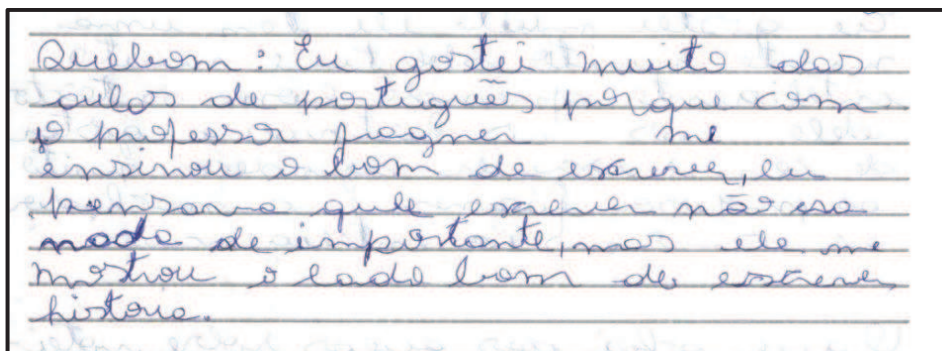 Quebom: Eu gostei muito das
aulas de portuguẽs porque com
o professor fragner me
ensinou o bom de escrever, eu
pensava que escrever não era
nada de importante, mas ele me
mostrou o lado bom de escrever
historia.